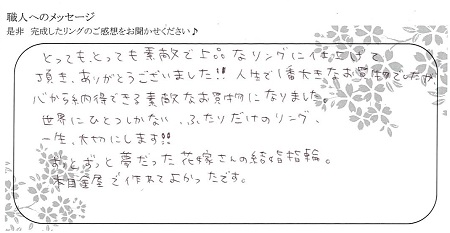 職人へのメッセージ
是非 完成したリングのご感想をお聞かせください♪
とっても、とっても素敵で上品なリングに仕上げて
頂き、ありがとうございました!! 人生で1番大きなお買物でしたが
心から納得できる素敵なお買物になりました。
世界にひとつしかない、ふたりだけのリング、
一生、大切にします!!
ずっとずっと夢だった花嫁さんの結婚指輪。
杢目金屋で作れてよかったです。